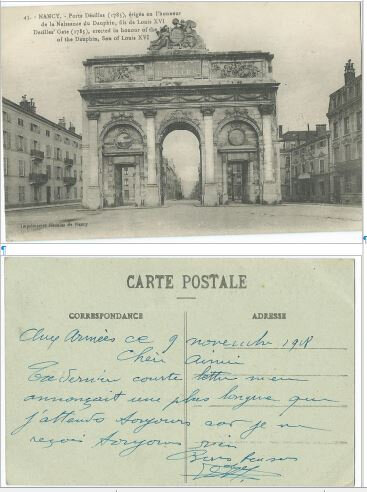 43. - NANCY. - Porte Désilles (1785), érigée en l'honneur
de la Naissance du Dauphin, fils de Louis XVI
Desilles' Gate (1785), erected in honour of the
of the Dauphin, Son of Louis XVI
Imprimeries Réunies de Nancy
CARTE POSTALE
CORRESPONDANCE
ADRESSE
Aux Armées ce 9 novembre 1918
Cher Aimé
Ta dernière courte lettre
annonçait une plus longue que
j'attends toujours car je ne
reçois toujours rien
Bons baisers